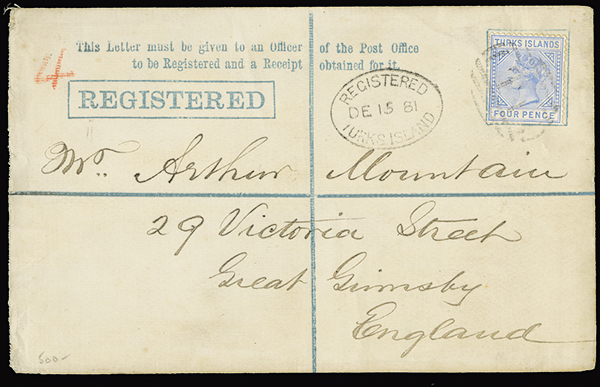 This Letter must be given to an Officer of the Post Office
to be Registered and a Receipt obtained for it.
4
REGISTERED
REGISTERED
DE 15 81
TURKS ISLAND
TURKS ISLANDS
FOUR PENCE
Mr. Arthur Mountain
29 Victoria Street
Great Grimsby
England
500-